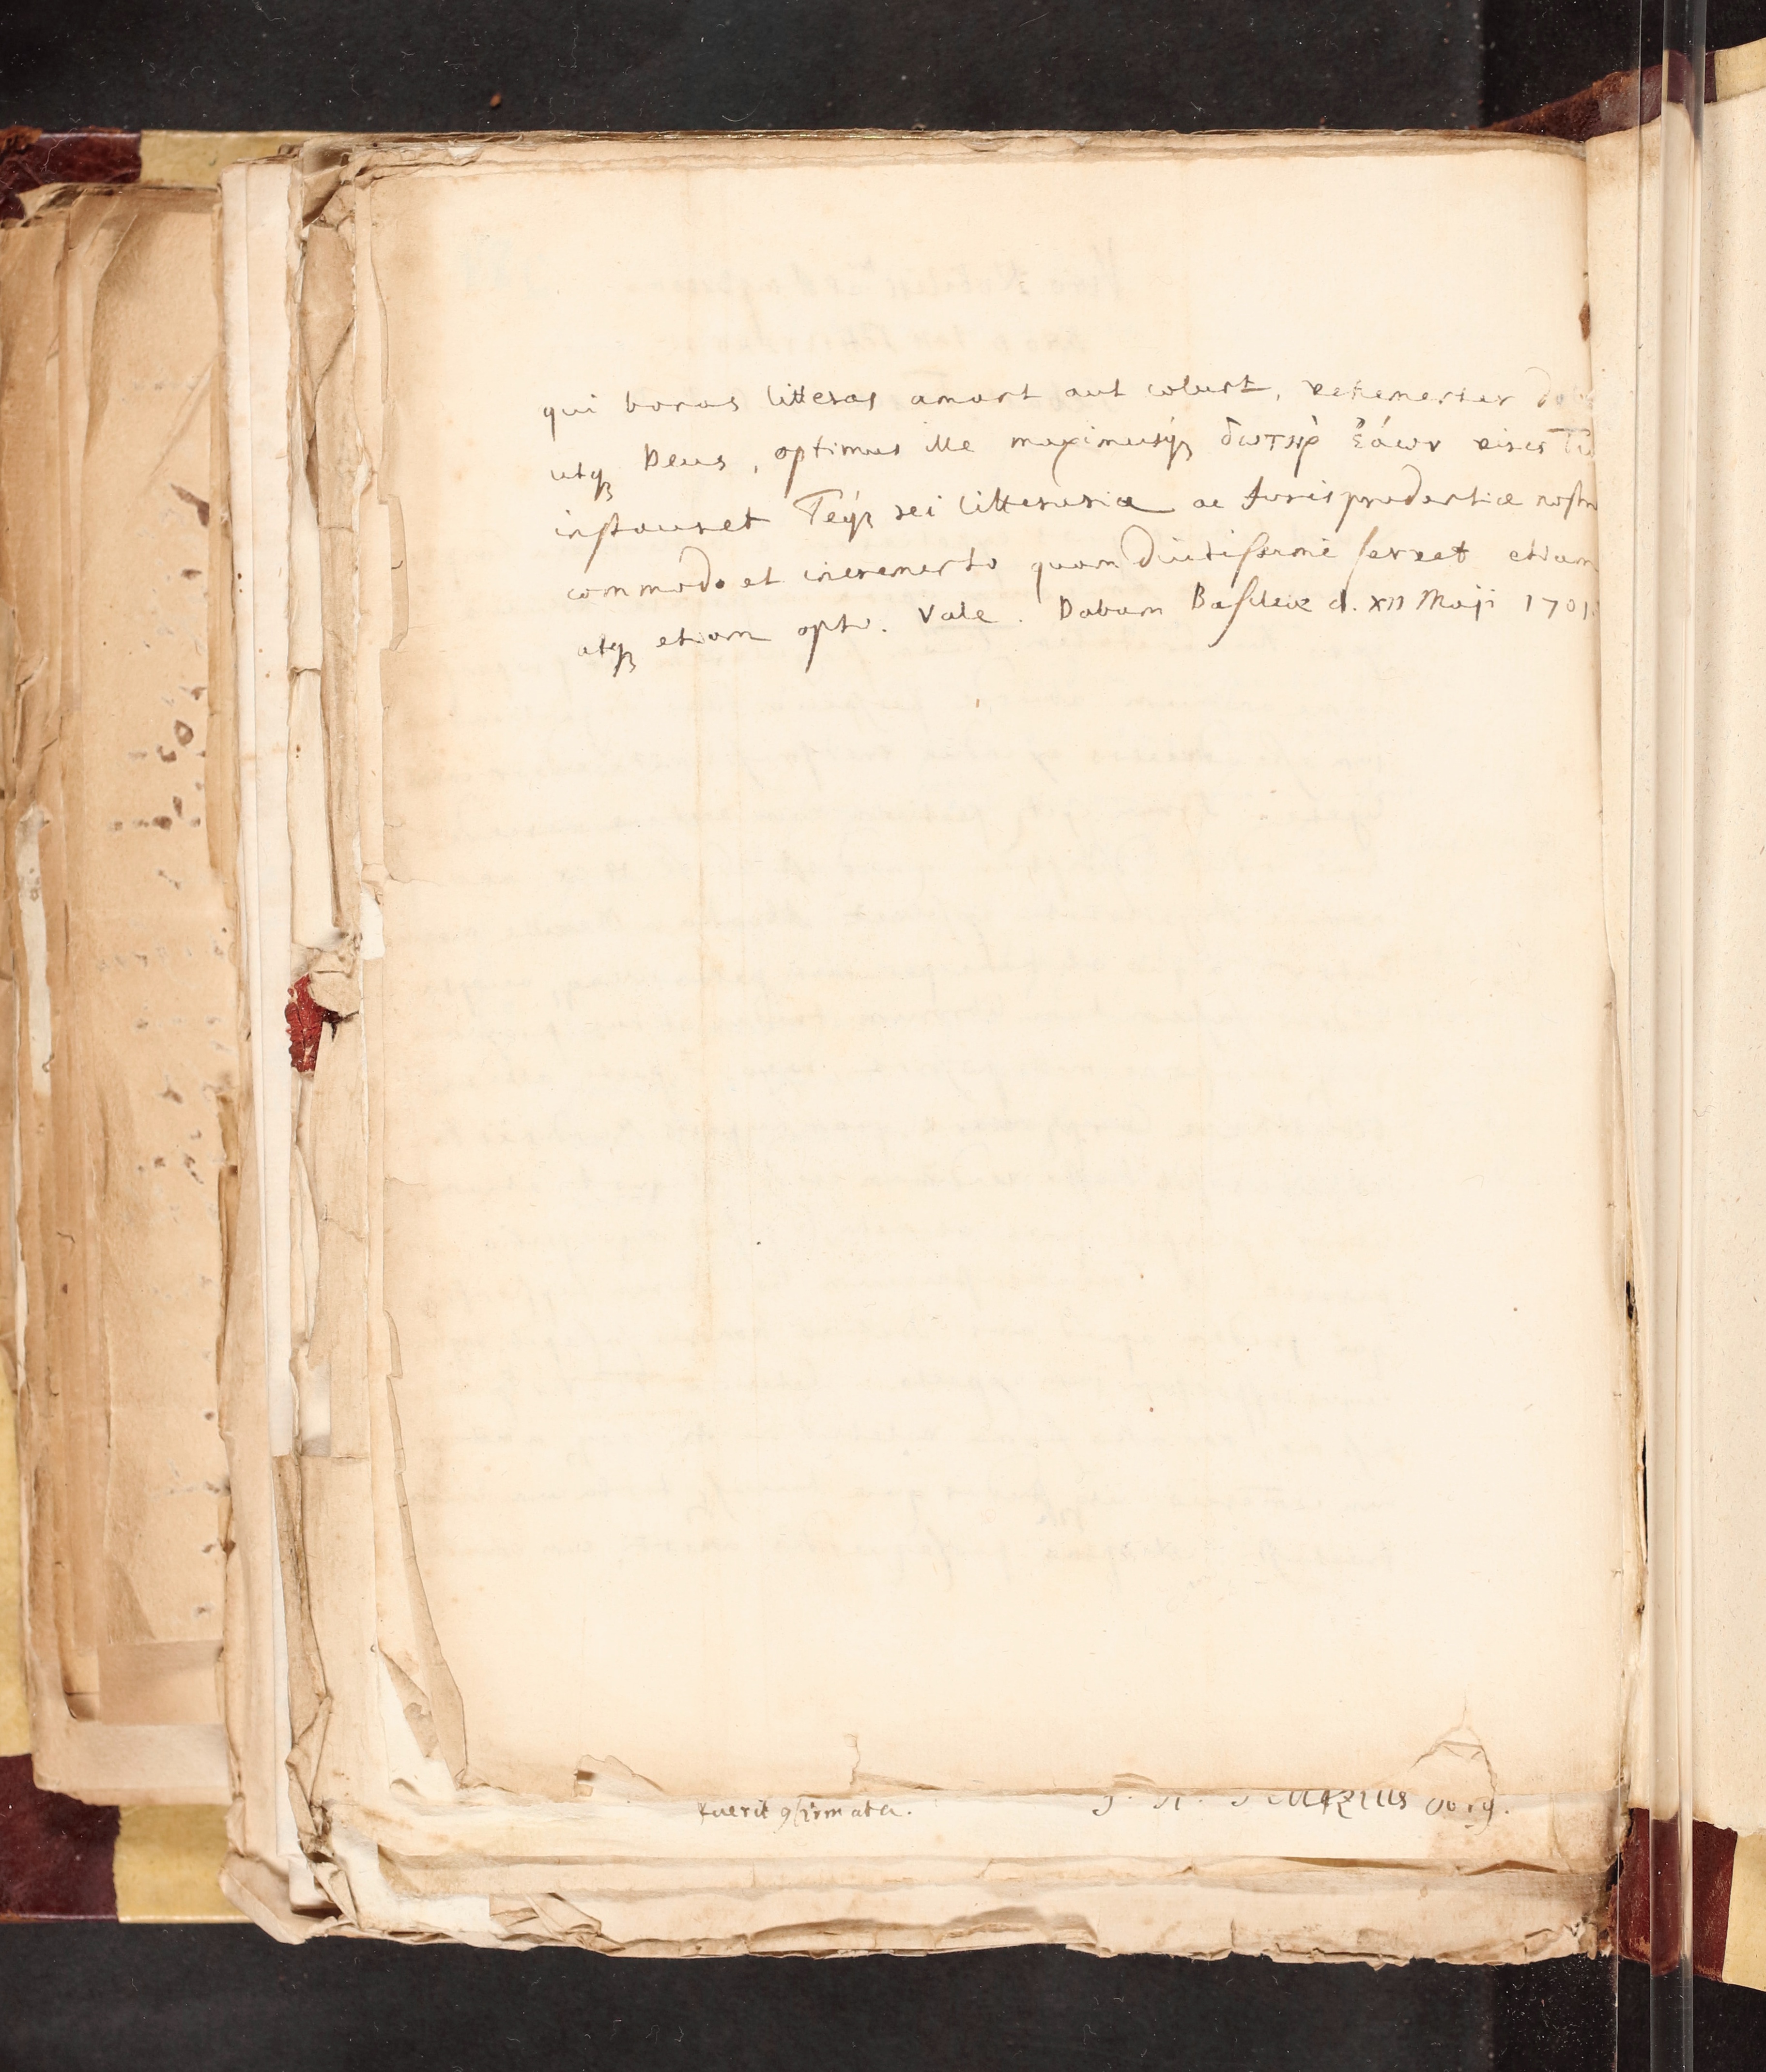 qui bonas litteras amant aut colunt, vehementer
utq Deus, optimus ille maximusq δωτὴρ ἐάων vires
instauret Teq rei litterariæ ac Jurisprudentiæ nostr
commodo et incremento quam diutissime servet etiam
atq etiam opto. Vale. Dabam Basileæ d. XII Maji 1701.
fuerit